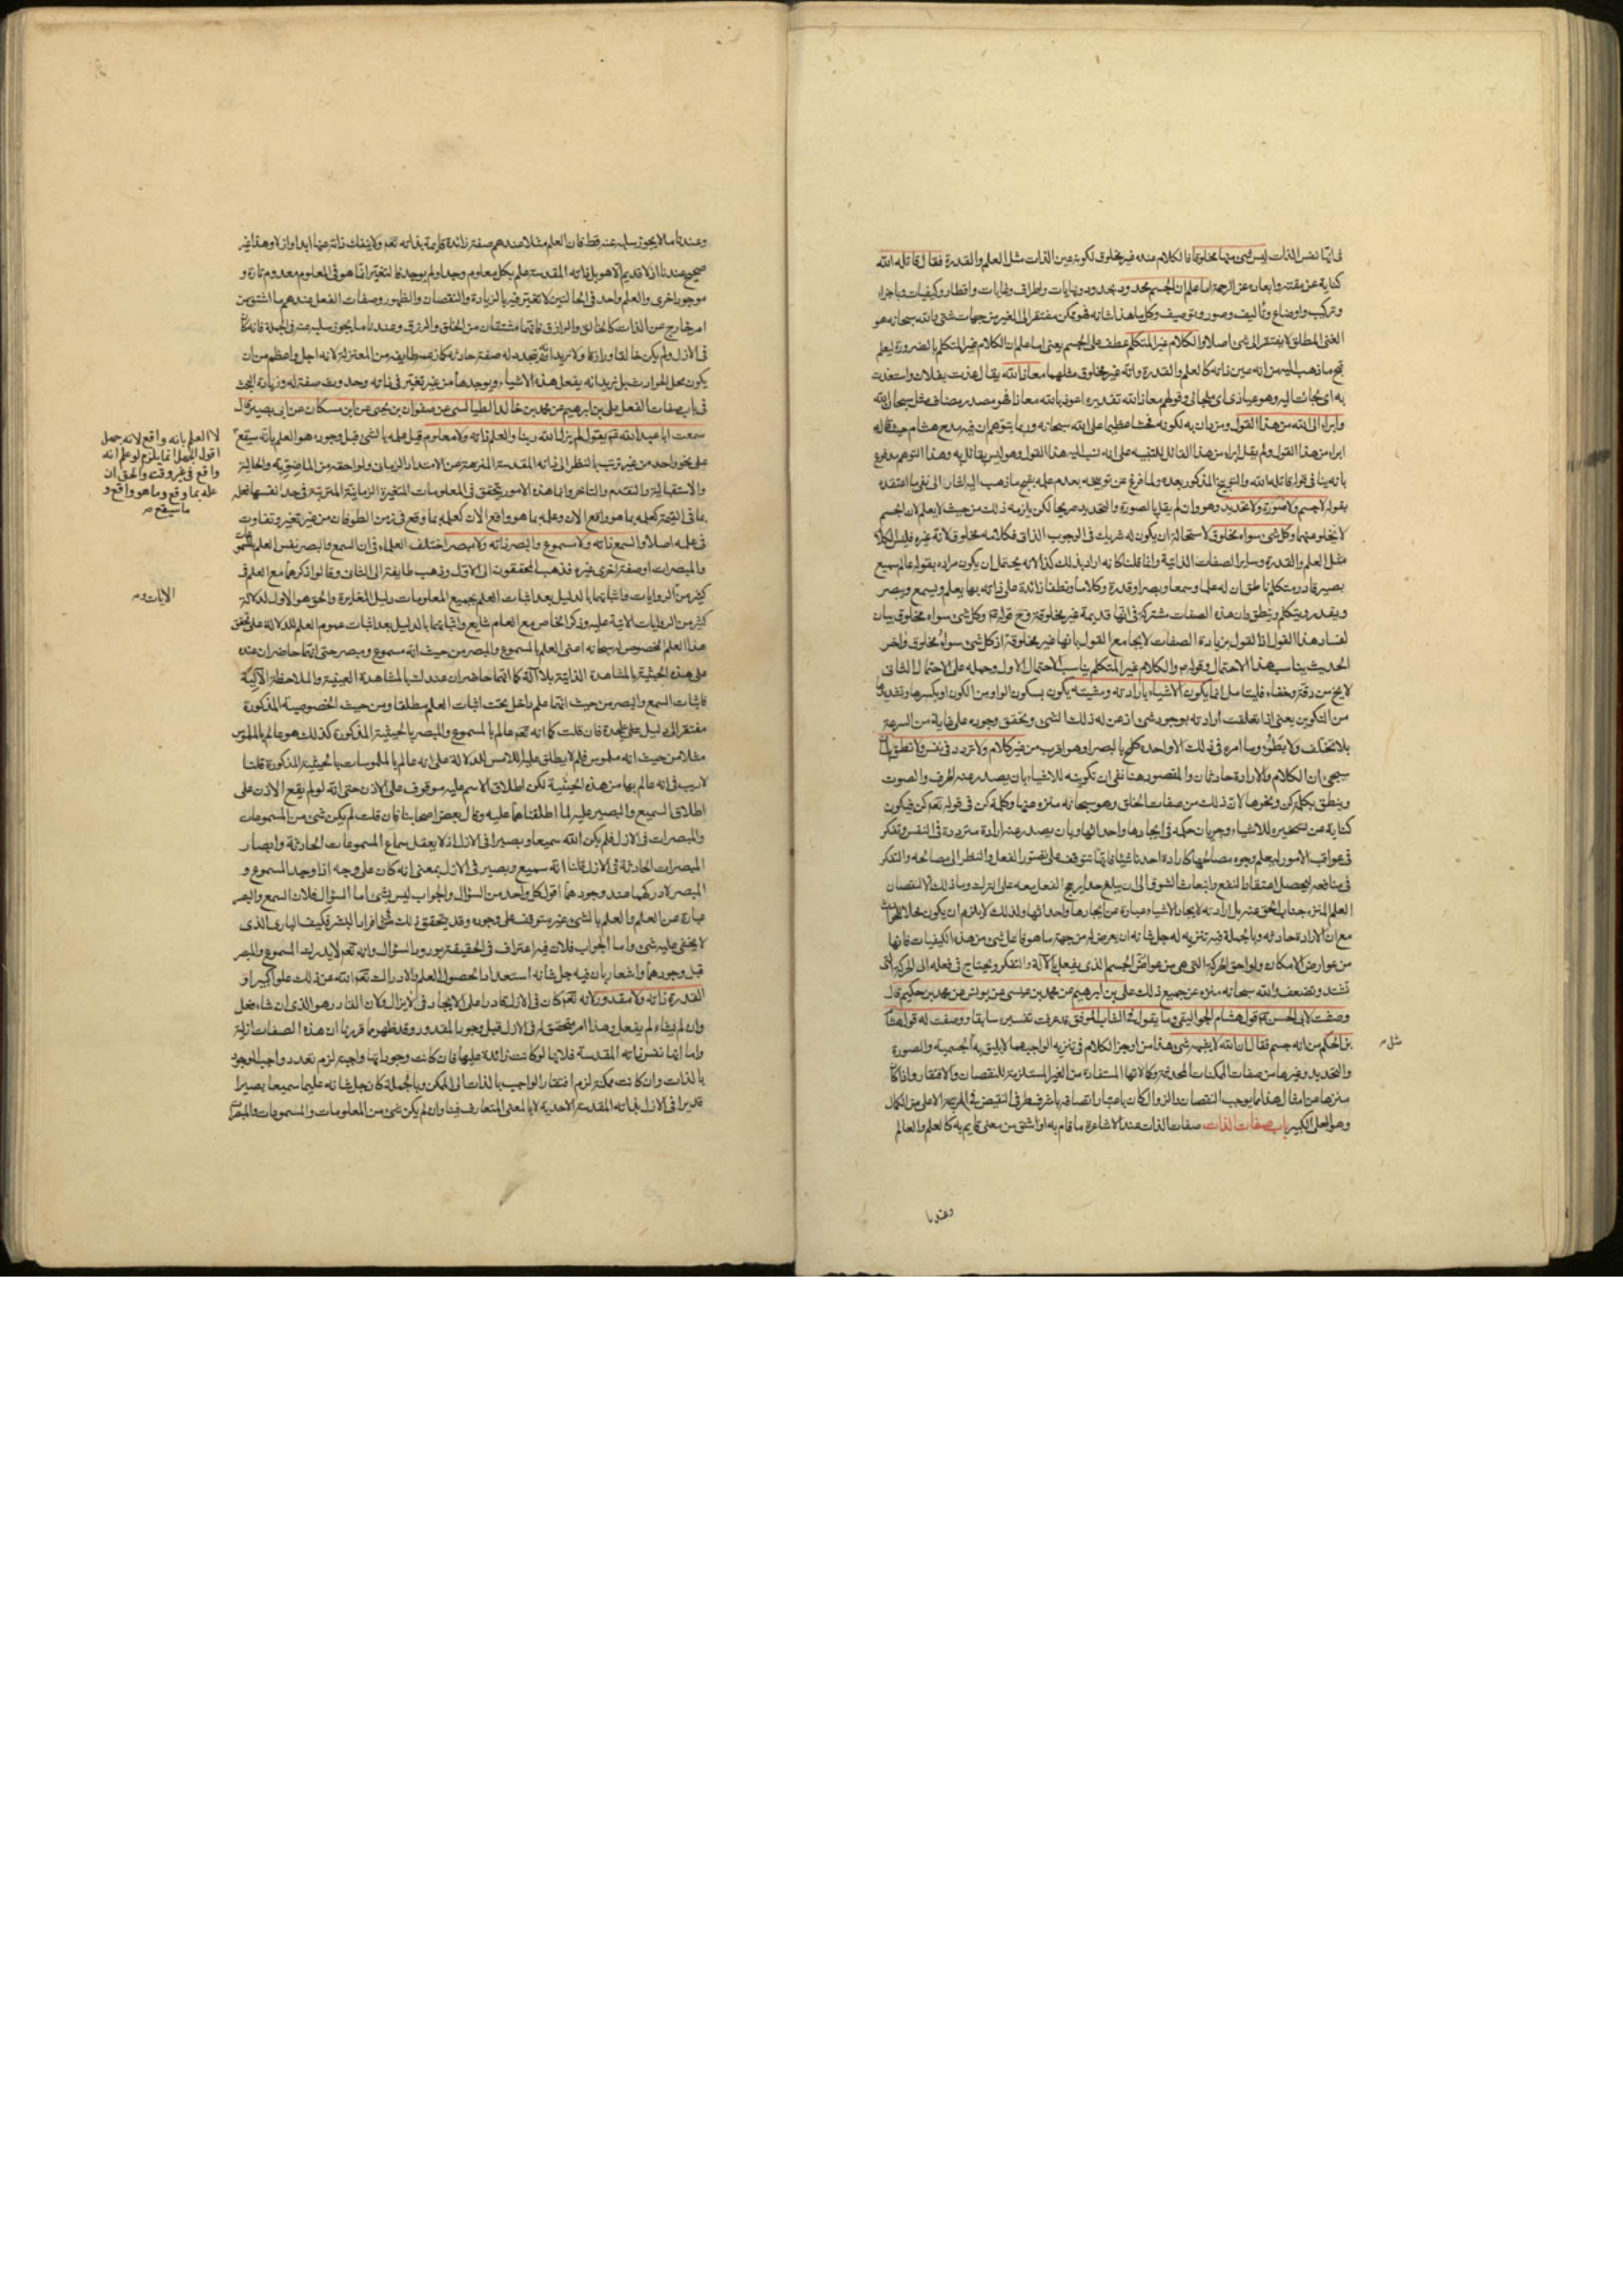 فى انها نفس الذات ليس شئ منها مخلوقا فالكلام عنده غير مخلوق لكونه عين الذات مثل العلم والقدرة فقال قاتله الله
كناية عن مقته وابعاده عن الرحمة اما علم ان الجسم محدود بحدود ونهايات واطراف وغايات واقطار وكيفيات وباجزاء
وتركيب واوضاع وتأليف وصور وتوصيف وكل ما هذا شانه فهو ممكن مفتقر الى الغير من جهات شتى والله سبحانه هو
الغنى المطلق لا يفتقر الى شئ اصلا والكلام غير المتكلم عطف على الجسم يعنى اما علم ان الكلام غير المتكلم بالضرورة ليعلم
قبح ما ذهب اليه من انه عين ذاته كالعلم والقدرة وانه غير مخلوق مثلهما معاذ الله يقال عذت بفلان واستعذت
به اى لجأت اليه وهو عياذى اى ملجائى وقولهم معاذ الله تقديره اعوذ بالله معاذا فهو مصدر مضاف مثل سبحان الله
وابراء الى الله من هذا القول
ابراء من هذا القول ولم يقل ابراء من هذا القائل
بقوله لا جسم ولا صورة ولا تحديد وهو وان لم يقل بالصورة والتحديد صريحا لكن يلزمه ذلك من حيث لا يعلم لان الجسم
لا يخلو منهما وكل شئ سواه مخلوق لاستحالة ان يكون له شريك فى الوجوب الذاتى فكلامه مخلوق لانه غيره فليس الكلام
مثل العلم والقدرة وساير الصفات الذاتية وانما قلنا كانه اراد بذلك كذا لانه يحتمل ان يكون مراده بقوله عالم سميع
بصير قادر متكلم ناطق ان له علما وسمعا وبصرا وقدرة وكلاما ونطقا زائدة على ذاته بها يعلم ويسمع ويبصر
ويقدر ويتكلم وينطق وان هذه الصفات مشتركة فى انها قديمة غير مخلوقة وح قوله وكل شئ سواه مخلوق بيان
لفساد هذا القول اذ القول بزيادة الصفات لا يجامع القول بانها غير مخلوقة اذ كل شئ سواه مخلوق واخر
الحديث يناسب هذا الاحتمال وقوله والكلام غير المتكلم يناسب الاحتمال الاول وحمله على الاحتمال الثانى
لا يخ من دقة وخفاء فليتامل انما يكون الاشياء بارادته ومشيته يكون بسكون الواو من الكون او بكسرها وتشديدها
من التكوين يعنى اذا تعلقت ارادته بوجود شئ اذعن له ذلك الشئ ويتحقق وجوده على غاية من السرعة
بلا تخلف ولا بطؤ وما امره فى ذلك الا واحدة كلمح بالبصر او هو اقرب من غير كلام ولا تردد فى نفس ولا نطق بلسان
سيجئ ان الكلام والارادة حادثان والمقصود هنا نفى ان تكوينه للاشياء بان يصدر عنه الحرف والصوت
وينطق بكلمة كن ونحوها لان ذلك من صفات الخلق وهو سبحانه منزه عنها وكلمة كن فى قوله تعم كن فيكون
كناية عن تسخيره للاشياء وجريان حكمه فى ايجادها واحداثها وبان يصدر عنه ارادة مترددة فى النفس وتفكر
فى عواقب الامور ليعلم وجوه مصالحها كارادة احدنا شيئا فانها تتوقف على تصور الفعل والنظر الى مصالحه والتفكر
فى منافعه ليحصل اعتقاد النفع وانبعاث الشوق الى ان يبلغ حدا يرجح الفعل معه على الترك وما ذلك الا لنقصان
العلم المنزه جناب الحق عنه بل ارادته لايجاد الاشياء عبارة عن ايجادها واحداثها ولذلك لا يلزم ان يكون
مع ان الارادة حادثه وبالجملة فيه تنزيه له جل شانه ان يعرض له من جهة ما هو فاعل شئ من هذه الكيفيات فانها
من عوارض الامكان ولواحق الحركة التى هى من عوارض الجسم الذى يفعل بالآلة والتفكر ويحتاج فى فعله الى الحركة التى
تشتد وتضعف والله سبحانه منزه عن جميع ذلك على بن ابرهيم عن محمد بن عيسى عن يونس عن محمد بن حكيم قال
وصفت لابى الحسن ع قول هشام الجواليقى وما يقول فى الشاب الموفق قد عرفت تفسيره سابقا ووصفت له قول هشام
بن الحكم من انه جسم فقال ان الله لا يشبهه شئ هذا من اوجز الكلام فى تنزيه الواجب عما لا يليق به الجسمية والصورة
والتحديد وغيرها من صفات الممكنات المحدثة وكمالاتها المستفادة من الغير المستلزمة للنقصان والافتقار واذا كان
منزها عن امثال هذا مما يوجب النقصان والزوال كان باعتبار اتصافه باشرف طرفى النقيض فى المرتبة الاعلى من الكمال
وهو العلى الكبير باب صفات الذات صفات الذات عند الاشاعرة ما قام به او اشتق من معنى قايم به كالعلم والعالم
مثل
وعندنا
وعندنا ما لا يجوز سلبه عنه قط فان العلم مثلا عندهم صفة زائدة قايمة بذاته تعم ولا ينفك ذاته عنها ابدا وازلا وهذا غير
صحيح عندنا اذ لا قديم الا هو بل ذاته المقدسة علم بكل معلوم وجد او لم يوجد فالتغير انما هو فى المعلوم معدوم تارة و
موجود اخرى والعلم واحد فى الحالتين لا تغير فيه بالزيادة والنقصان والظهور وصفات الفعل عندهم ما اشتق من
امر خارج عن الذات كالخالق والرازق فانهما مشتقان من الخلق والرزق وعندنا ما يجوز سلبه عنه فى الجملة فانه كان
فى الازل ولم يكن خالقا ورازقا ولا نريد انه تجدد له صفة حادثة كما زعمت طايفة من المعتزلة لانه اجل واعظم من ان
يكون محل الحوادث بل نريد انه يفعل هذه الاشياء ويوجدها من غير تغير فى ذاته وحدوث صفة له وزيادة البحث
فى باب صفات الفعل على بن ابرهيم عن محمد بن خالد الطيالسى عن صفوان بن يحيى عن ابن مسكان عن ابى بصير قال
سمعت ابا عبد الله ع يقول لم يزل الله ربنا والعلم ذاته ولا معلوم قبل علمه بالشئ قبل وجوده هو العلم بانه سيقع
على نحو واحد من غير ترتب بالنظر الى ذاته المقدسة المنزهة عن الامتداد الزمان ولواحقه من الماضوية والحالية
والاستقبالية والتقدم والتاخر وانما هذه الامور يتحقق فى المعلومات المتغيرة الزمانية المترتبة فى حد انفسها فعلمه
بما فى القيمة كعلمه بما هو واقع الان وعلمه بما هو واقع الان كعلمه بما وقع فى زمن الطوفان من غير تغير وتفاوت
فى علمه اصلا والسمع ذاته ولا مسموع والبصر ذاته ولا مبصر اختلف العلماء فى ان السمع والبصر نفس العلم بالمسموعات
والمبصرات او صفة اخرى غيره فذهب المحققون الى الاول وذهب طايفة الى الثانى وقالوا ذكرهما مع العلم فى
كثير من الروايات واثباتهما بالدليل بعد اثبات العلم بجميع المعلومات دليل المغايرة والحق هو الاول لدلالة
كثير من الروايات الاتية عليه وذكر الخاص مع العام شايع واثباتهما بالدليل بعد اثبات عموم العلم للدلالة على تحقق
هذا العلم المخصوص له سبحانه اعنى العلم بالمسموع والمبصر من حيث انه مسموع ومبصر حتى انهما حاضران عنده
على هذه الحيثية بالمشاهدة الذاتية بلا آلة كما انهما حاضران عندك بالمشاهدة العينية والملاحظة الآلية
فاثبات السمع والبصر من حيث انهما علم داخل تحت اثبات العلم مطلقا ومن حيث الخصوصية المذكورة
مفتقر الى دليل على حدة فان قلت كما انه تعم عالم بالمسموع والمبصر بالحيثية المذكورة كذلك هو عالم بالملموس
مثلا من حيث انه ملموس فلم لا يطلق عليه اللامس للدلالة على انه عالم بالملموسات بالحيثية المذكورة قلنا
لا ريب فى انه عالم بها من هذه الحيثية لكن اطلاق الاسم عليه موقوف على الاذن حتى انه لو لم يقع الاذن على
اطلاق السميع والبصير عليه لما اطلقناهما عليه وقال بعض اصحابنا فان قلت لم يكن شئ من المسموعات
والمبصرات فى الازل فلم يكن الله سميعا وبصيرا فى الازل اذ لا يعقل سماع المسموعات الحادثة وابصار
المبصرات الحادثة فى الازل قلنا انه سميع وبصير فى الازل بمعنى انه كان على وجه اذا وجد المسموع و
المبصر لادركهما عند وجودهما اقول كل واحد من السؤال والجواب ليس بشئ اما السؤال فلان السمع والبصر
عبارة عن العلم والعلم بالشئ غير متوقف على وجوده وقد يتحقق ذلك فى افراد البشر فكيف البارى الذى
لا يخفى عليه شئ واما الجواب فلان فيه اعتراف فى الحقيقة بورود السؤال وانه تعم لا يدرك المسموع والمبصر
قبل وجودهما واشعار بان فيه جل شانه استعدادا لحصول العلم والادراك تعم الله عن ذلك علوا كبيرا و
القدرة ذاته ولا مقدور لانه تعم كان فى الازل قادرا على الايجاد فى لا يزال ولان القادر هو الذى ان شاء فعل
وان لم يشاء لم يفعل وهذا امر يتحقق له فى الازل قبل وجود المقدور وقد ظهر مما قررنا ان هذه الصفات ازلية
واما انها نفس ذاته المقدسة فلانها لو كانت زائدة عليها فان كانت وجوداتها واجبة لزم تعدد واجب الوجود
بالذات وان كانت ممكنة لزم افتقار الواجب بالذات الى الممكن وبالجملة كان جل شانه عليما سميعا بصيرا
قديرا فى الازل بذاته المقدسة الاحدية لا بالمعنى المتعارف فينا وان لم يكن شئ من المعلومات والمسموعات والمبصرات
لا العلم بانه واقع لانه جهل
اقول الجهل انما يلزم لو علم انه
واقع فى غير وقته والحق ان
علمه بما وقع وما هو واقع و
ما سيقع
الايات و